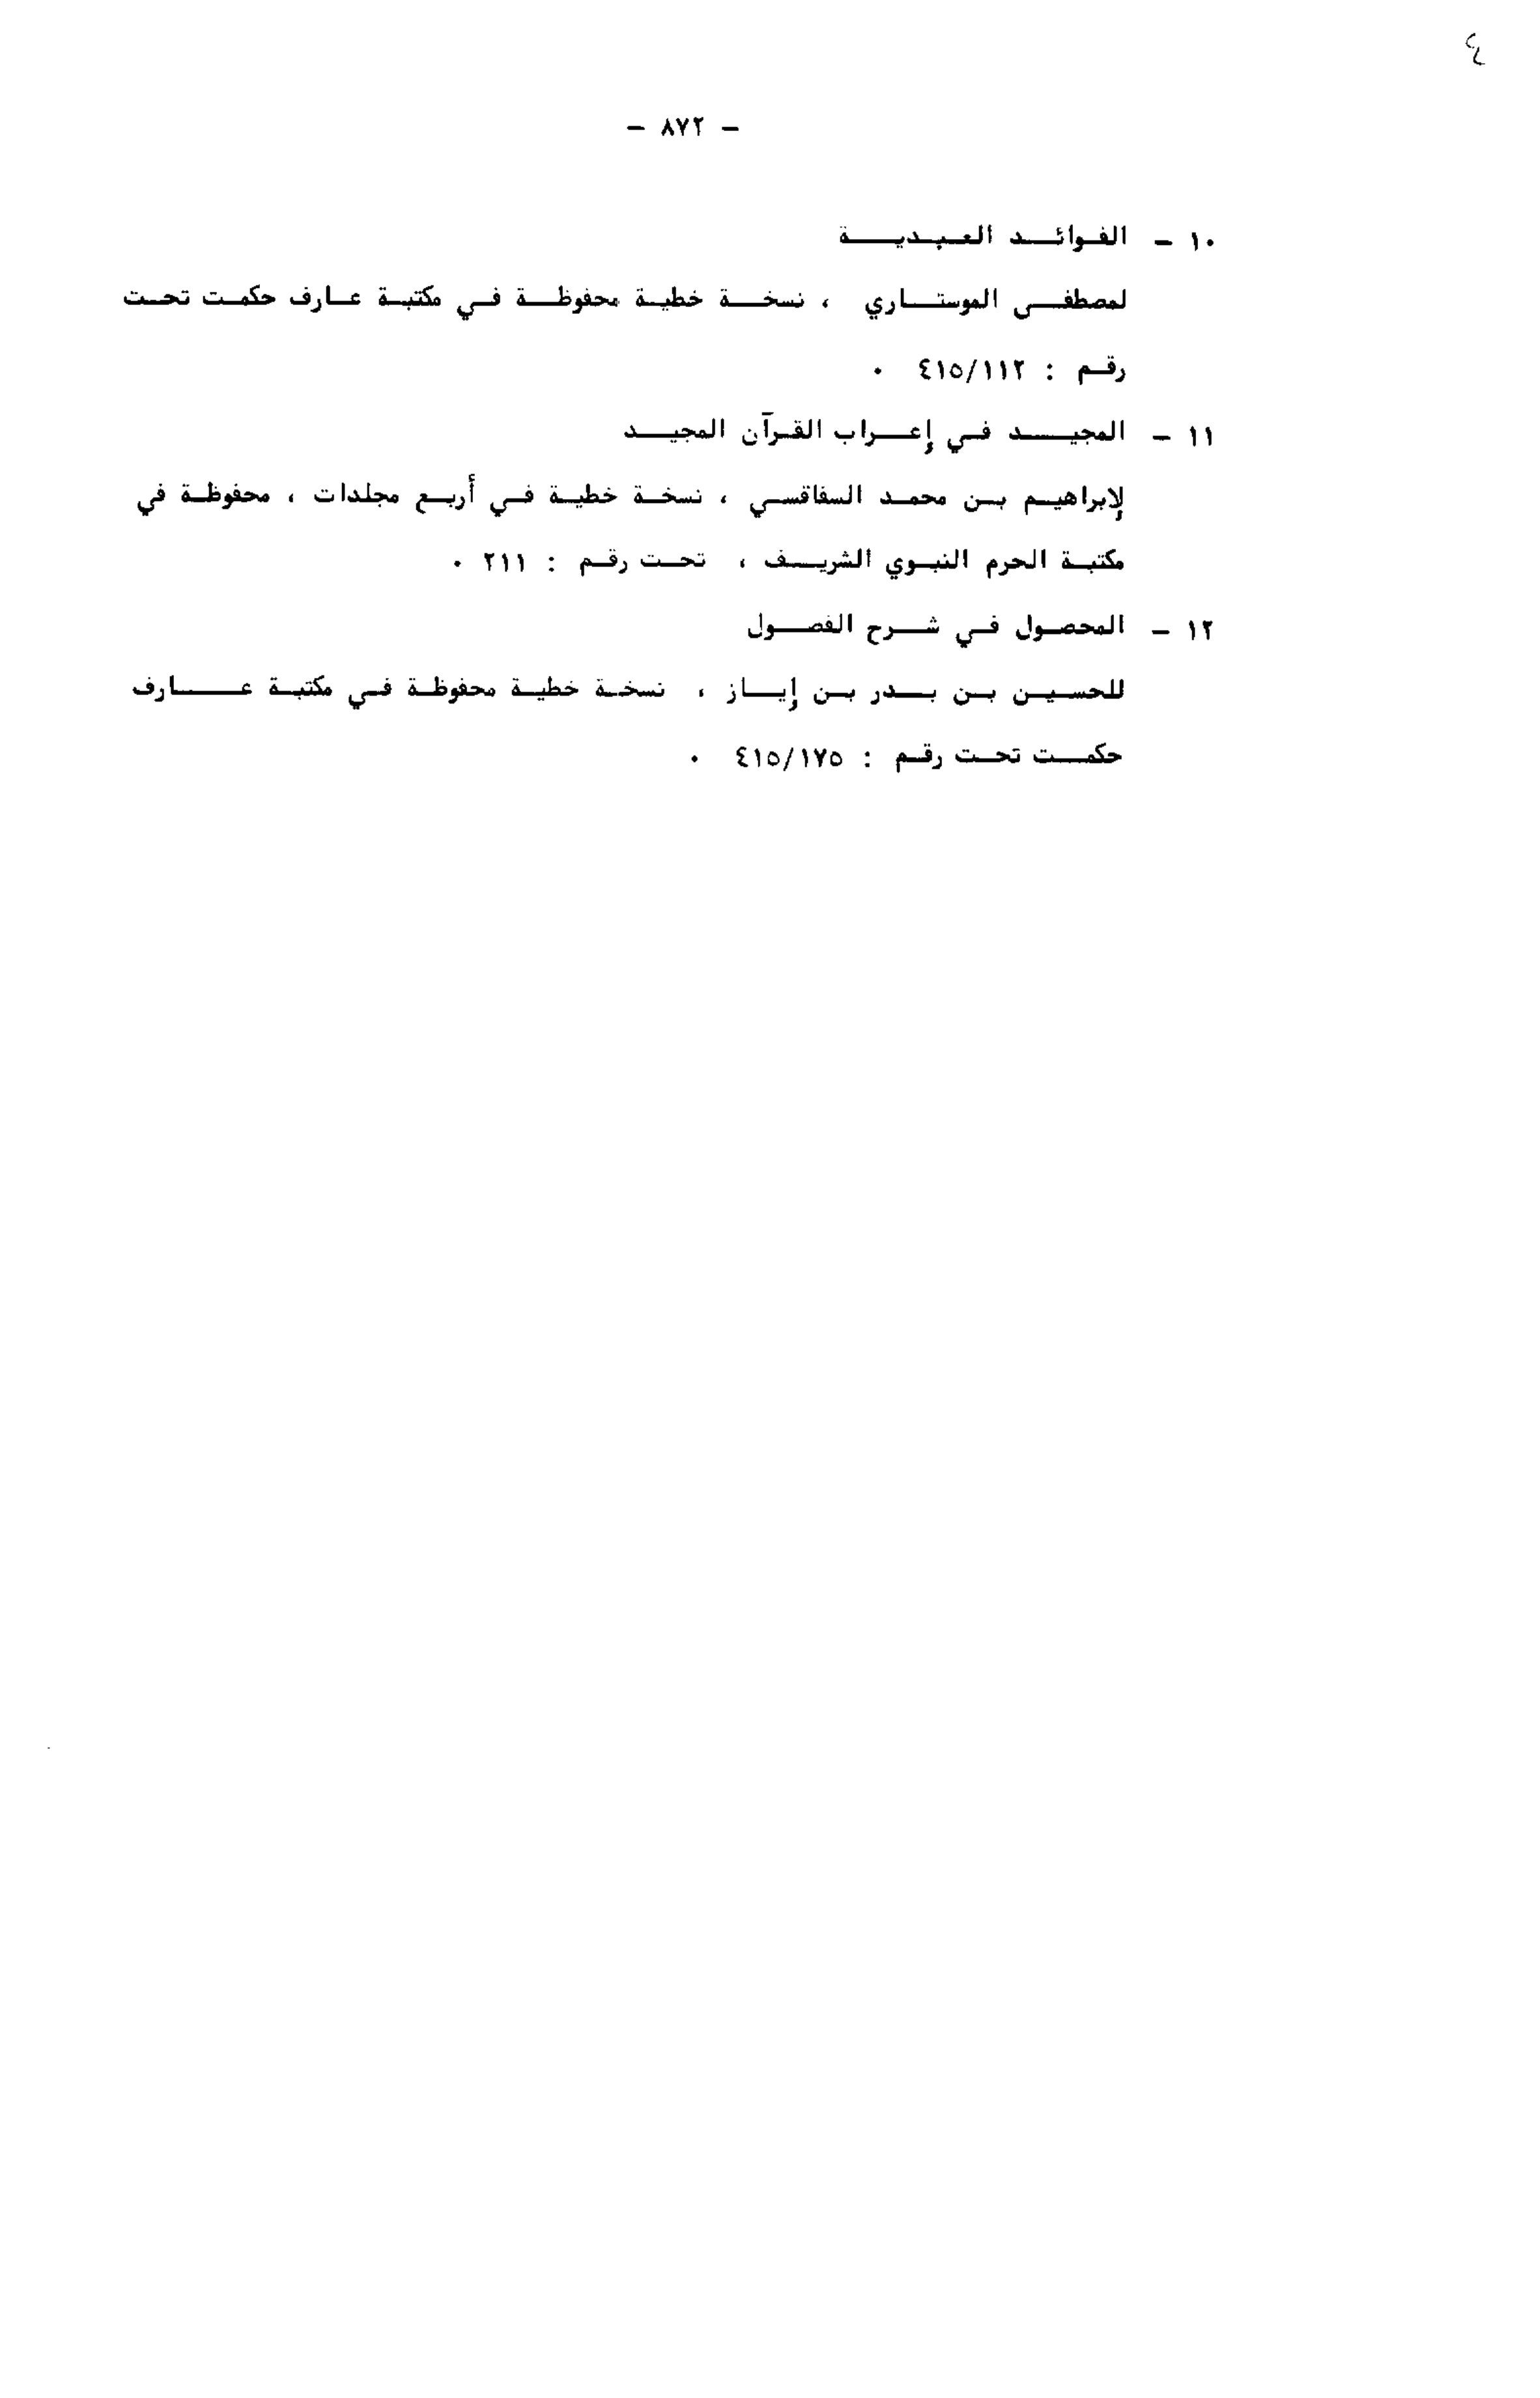 ٤
- ٨٧٢ -
١٠ - الفوائد العبدية
لمصطفى الموستاري ، نسخة خطية محفوظة في مكتبة عارف حكمت تحت
رقم : ٤١٥/١١٢ .
١١ - المجيد في إعراب القرآن المجيد
لإبراهيم بن محمد السفاقسي ، نسخة خطية في أربع مجلدات ، محفوظة في
مكتبة الحرم النبوي الشريف ، تحت رقم : ٢١١ .
١٢ - المحصول في شرح الفصول
للحسين بن بدر بن إياز ، نسخة خطية محفوظة في مكتبة عارف
حكمت تحت رقم : ٤١٥/١٧٥ .